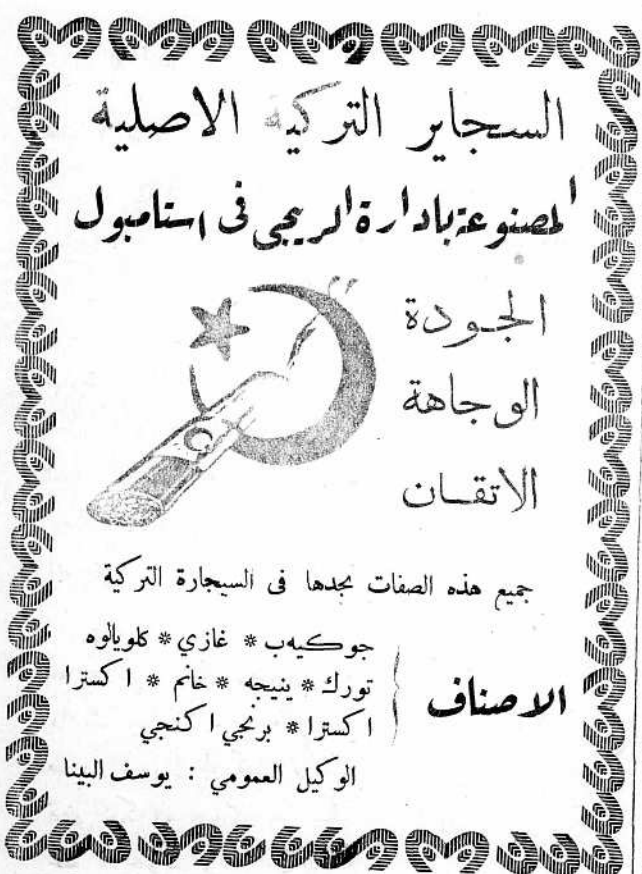 السجاير التركية الاصلية
المصنوعة بادارة الريجي فى استامبول
الجودة
الوجاهة
الاتقان
جميع هذه الصفات تجدها فى السيجارة التركية
الاصناف
جوكيه ب * غازي * كلوبالوه
تورك * ينيجه * خانم * اكسترا
اكسترا * برنجي اكنجي
الوكيل العمومي : يوسف البينا